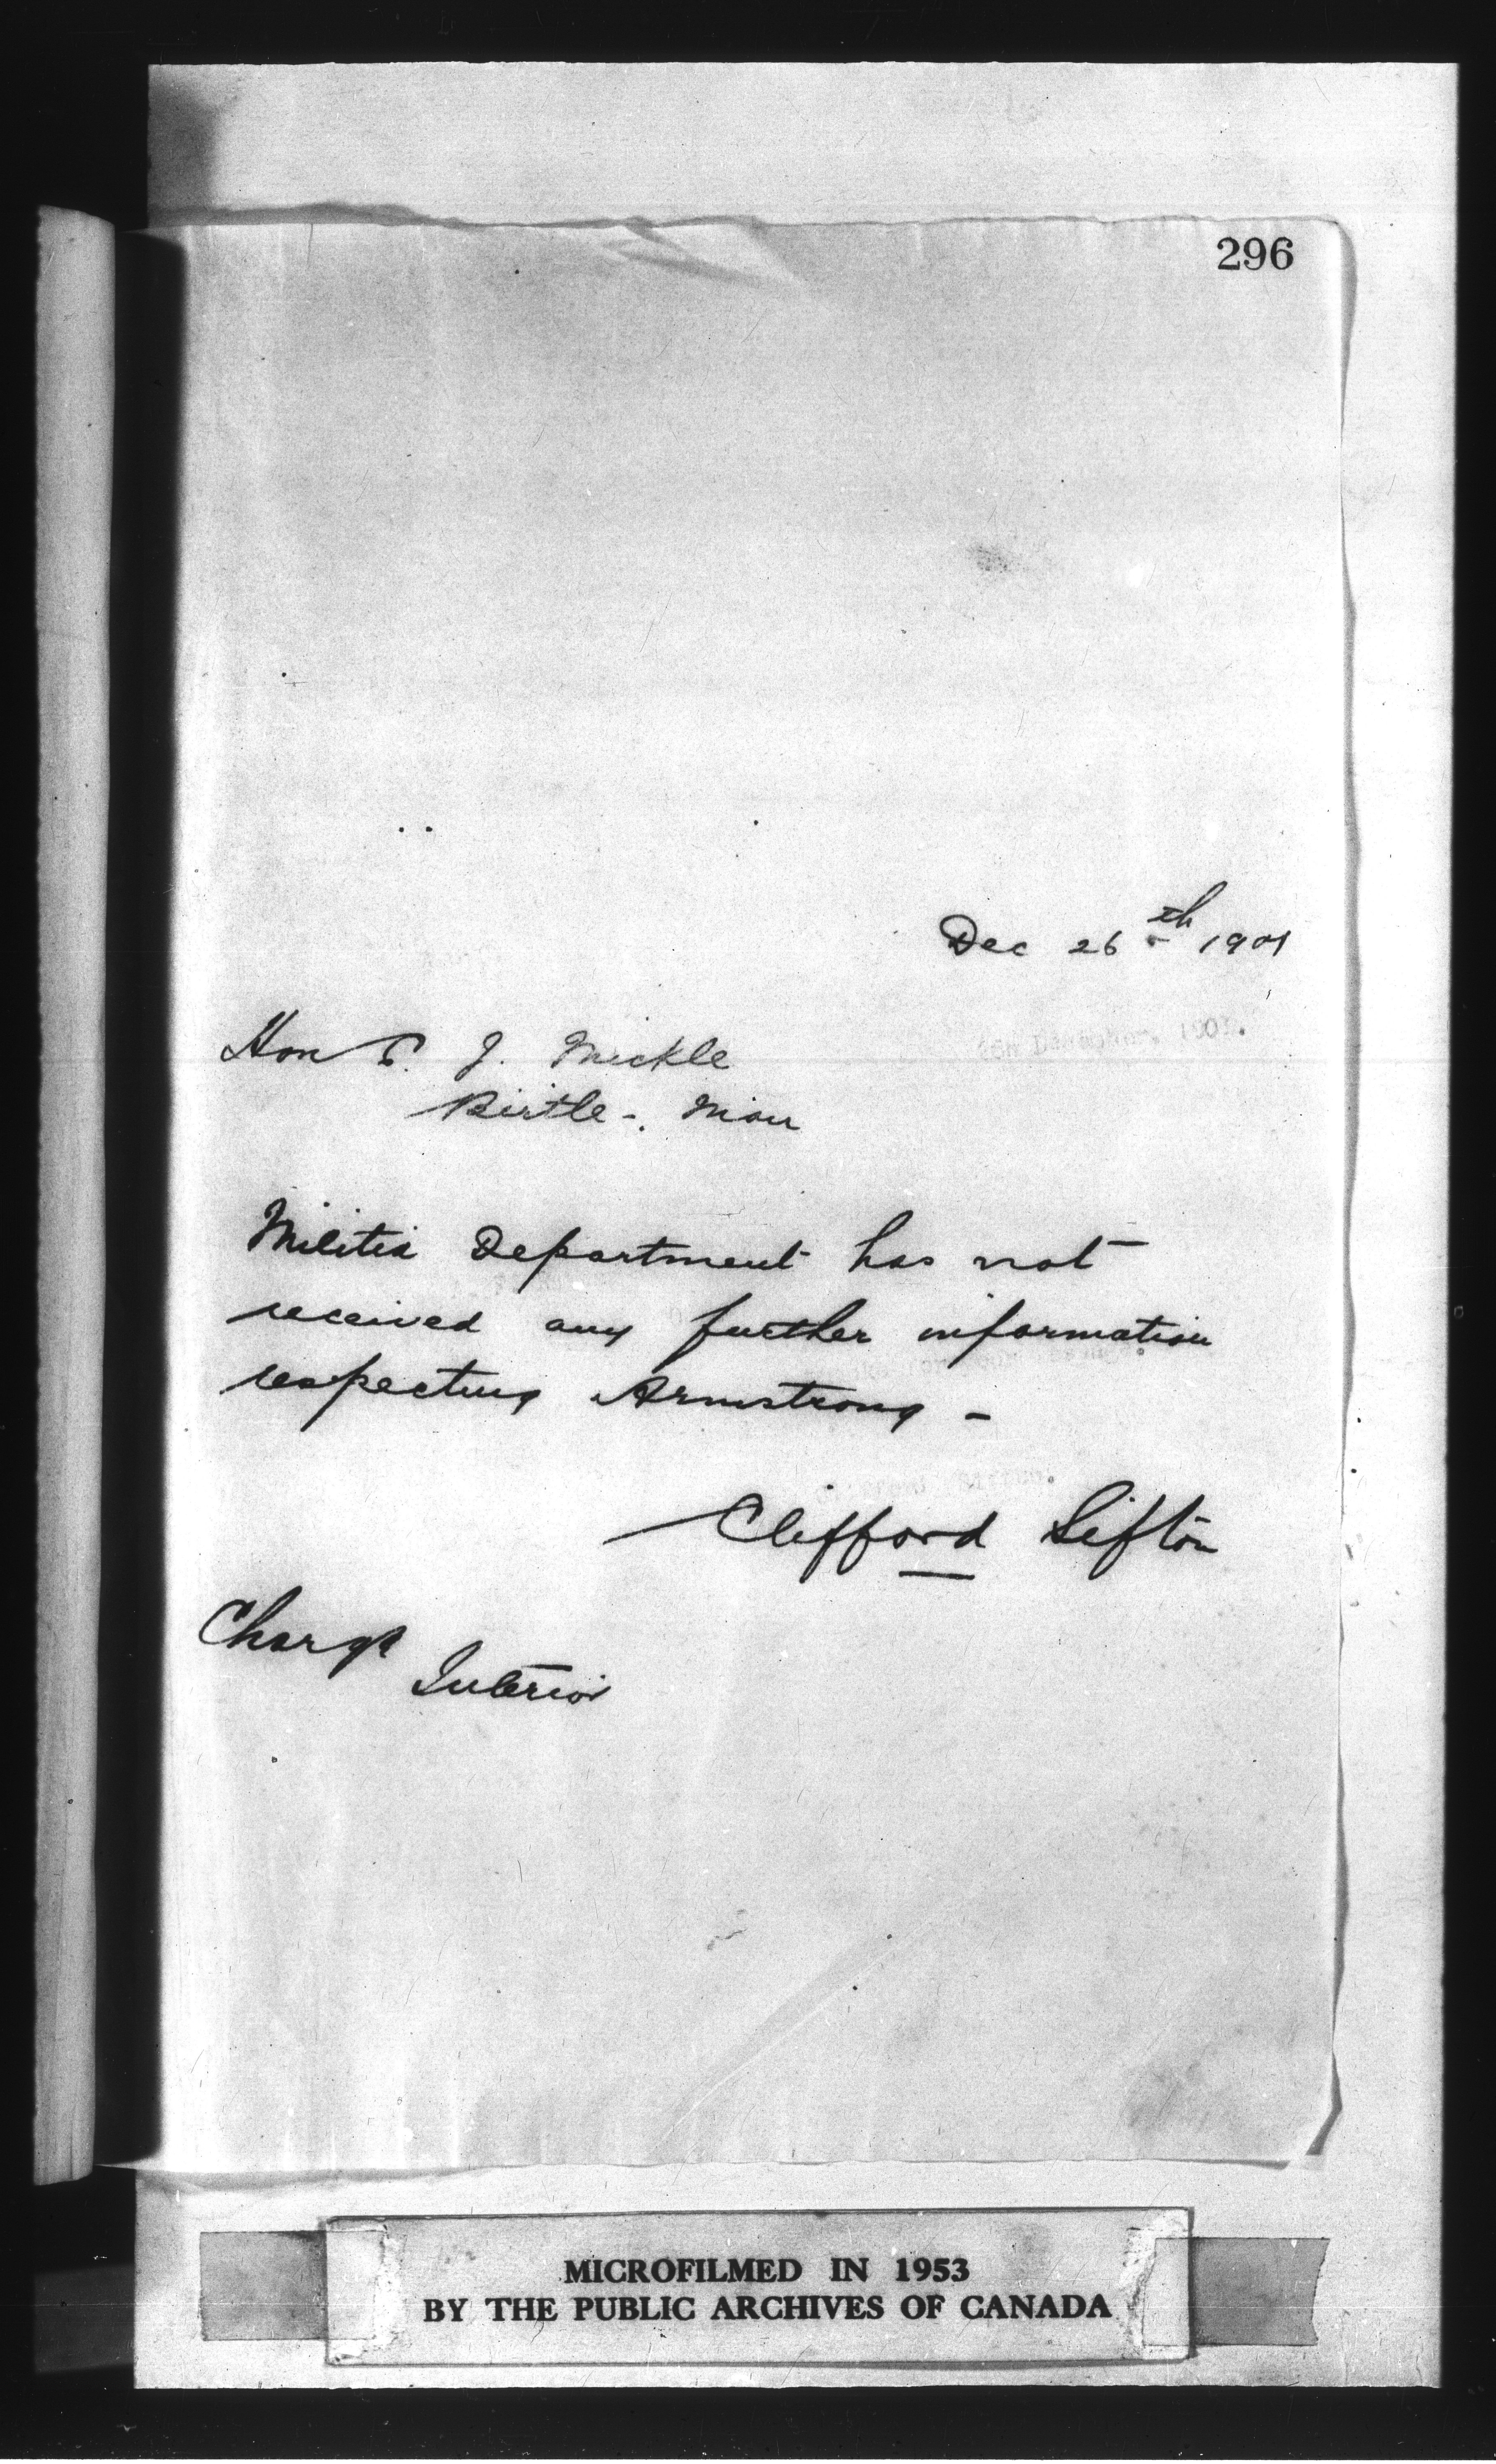 296
Dec 26th 1901
Hon J. Mickle
Birtle -. Man
Militia Department has not
received any further information
respecting Armstrong -
Clifford Sifton
Charge
Interior
MICROFILMED IN 1953
BY THE PUBLIC ARCHIVES OF CANADA